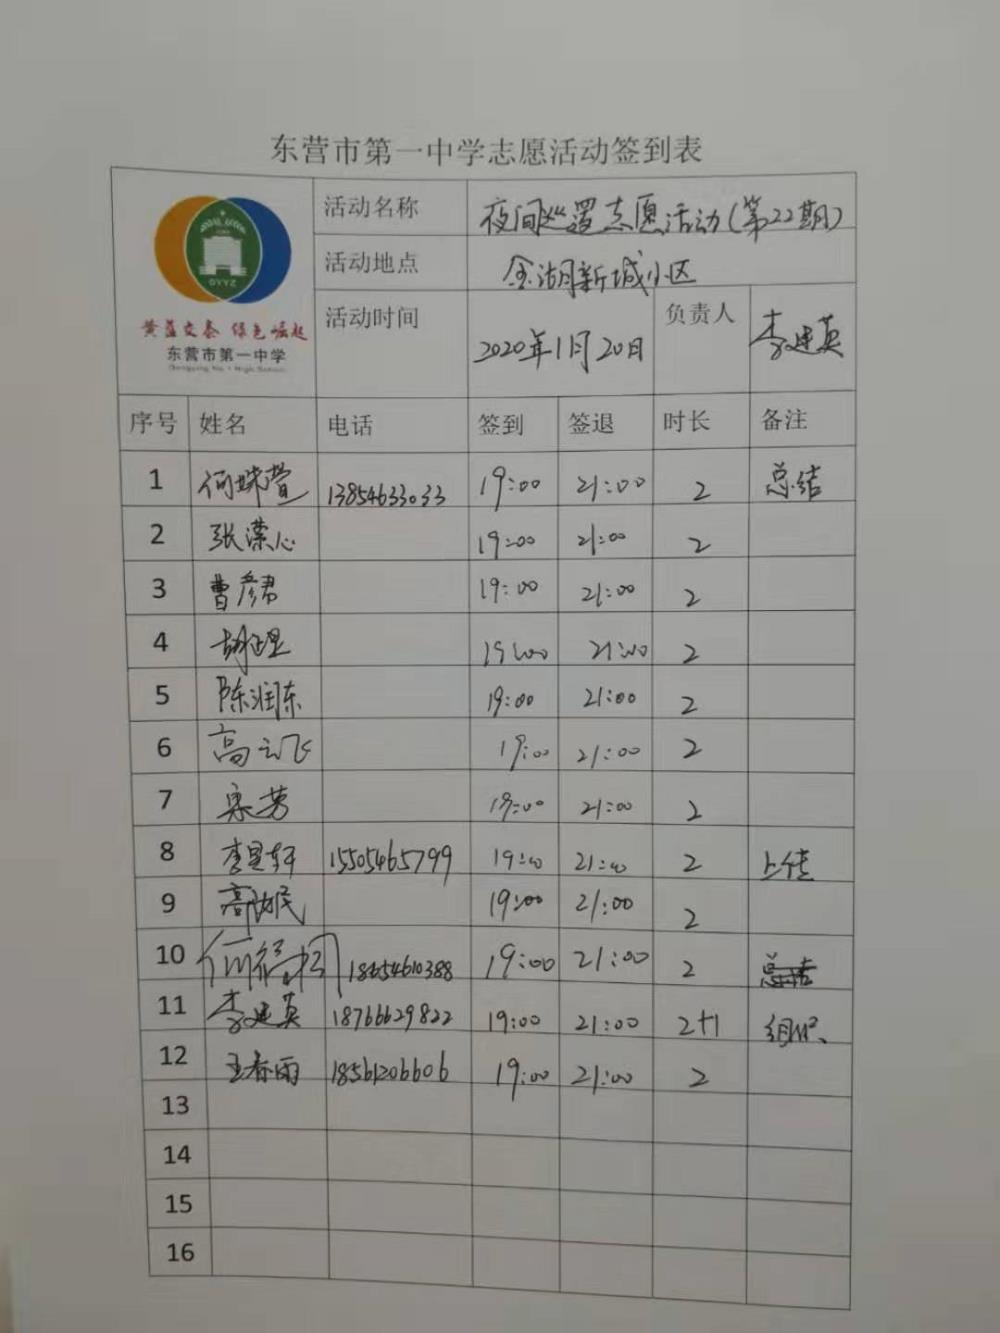 东营市第一中学志愿活动签到表
活动名称 夜间巡逻志愿活动(第22期)
活动地点 金湖新城小区
活动时间 2020年1月20日 负责人 李建英
DYYZ
黄蓝交泰 绿色崛起
东营市第一中学
Dongying No.1 High School
序号 姓名 电话 签到 签退 时长 备注
1 何姝萱 13854633033 19:00 21:00 2 总结
2 张潆心 19:00 21:00 2
3 曹彦君 19:00 21:00 2
4 19:00 21:00 2
5 陈润东 19:00 21:00 2
6 高云飞 19:00 21:00 2
7 宋芳 19:00 21:00 2
8 李昱轩 15505465799 19:00 21:00 2 上传
9 19:00 21:00 2
10 18654610388 19:00 21:00 2 总结
11 李建英 18766629822 19:00 21:00 2+1 组织
12 王春雨 18561206606 19:00 21:00 2
13
14
15
16